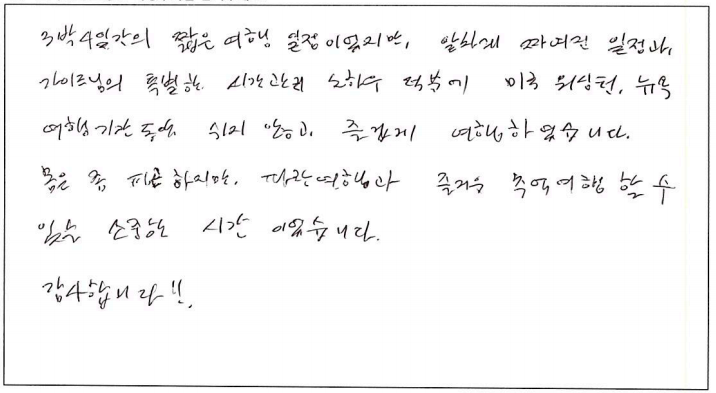 3박4일간의 짧은 여행 일정이었지만, 알차게 짜여진 일정과,
가이드님의 특별한 시간관리 노하우 덕분에 미국 워싱턴, 뉴욕
여행기간동안 쉬지 않고, 즐겁게 여행하였습니다.
몸은 좀 피곤하지만, 즐거운 추억여행 할 수
있는 소중한 시간 이었습니다.
감사합니다!!.